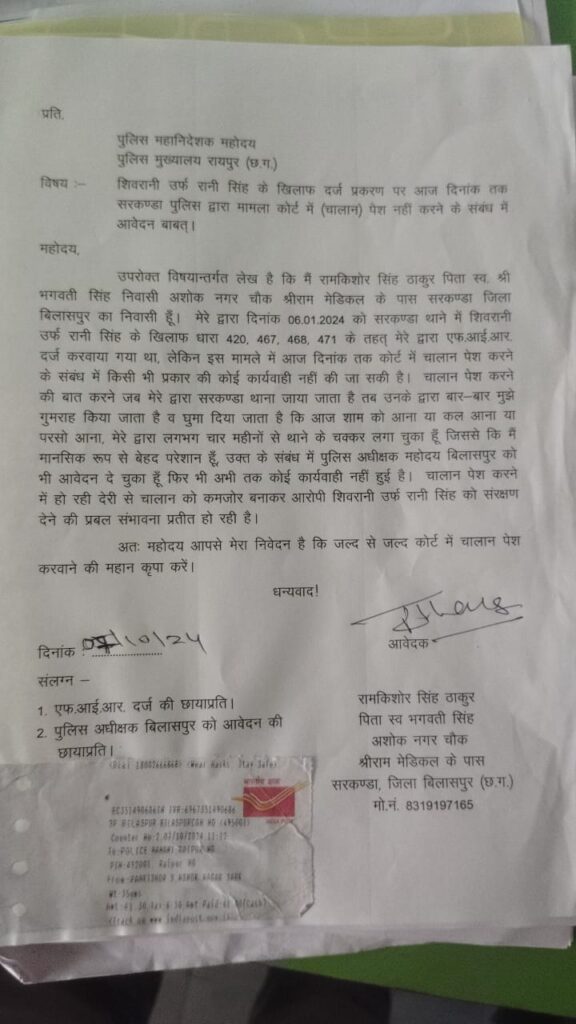 प्रति,
पुलिस महानिदेशक महोदय
पुलिस मुख्यालय रायपुर (छ.ग.)
विषय :– शिवरानी उर्फ रानी सिंह के खिलाफ दर्ज प्रकरण पर आज दिनांक तक
सरकण्डा पुलिस द्वारा मामला कोर्ट में (चालान) पेश नहीं करने के संबंध में
आवेदन बाबत्।
महोदय,
उपरोक्त विषयान्तर्गत लेख है कि मैं रामकिशोर सिंह ठाकुर पिता स्व. श्री
भगवती सिंह निवासी अशोक नगर चौक श्रीराम मेडिकल के पास सरकण्डा जिला
बिलासपुर का निवासी हूँ। मेरे द्वारा दिनांक 06.01.2024 को सरकण्डा थाने में शिवरानी
उर्फ रानी सिंह के खिलाफ धारा 420, 467, 468, 471 के तहत् मेरे द्वारा एफ.आई.आर.
दर्ज करवाया गया था, लेकिन इस मामले में आज दिनांक तक कोर्ट में चालान पेश करने
के संबंध में किसी भी प्रकार की कोई कार्यवाही नहीं की जा सकी है। चालान पेश करने
की बात करने जब मेरे द्वारा सरकण्डा थाना जाया जाता है तब उनके द्वारा बार–बार मुझे
गुमराह किया जाता है व घुमा दिया जाता है कि आज शाम को आना या कल आना या
परसो आना, मेरे द्वारा लगभग चार महीनों से थाने के चक्कर लगा चुका हूँ जिससे कि मैं
मानसिक रूप से बेहद परेशान हूँ, उक्त के संबंध में पुलिस अधीक्षक महोदय बिलासपुर को
भी आवेदन दे चुका हूँ फिर भी अभी तक कोई कार्यवाही नहीं हुई है। चालान पेश करने
में हो रही देरी से चालान को कमजोर बनाकर आरोपी शिवरानी उर्फ रानी सिंह को संरक्षण
देने की प्रबल संभावना प्रतीत हो रही है।
अतः महोदय आपसे मेरा निवेदन है कि जल्द से जल्द कोर्ट में चालान पेश
करवाने की महान कृपा करें।
धन्यवाद!
दिनांक : 07/10/24
आवेदक
संलग्न –
1. एफ.आई.आर. दर्ज की छायाप्रति।
2. पुलिस अधीक्षक बिलासपुर को आवेदन की
छायाप्रति।
रामकिशोर सिंह ठाकुर
पिता स्व भगवती सिंह
अशोक नगर चौक
श्रीराम मेडिकल के पास
सरकण्डा, जिला बिलासपुर (छ.ग.)
मो.नं. 8319197165
(Dial 18002666868) (Wear Masks, Stay Safe)
भारतीय डाक
India Post
SP BILASPUR BILASPURCGH HO (495001)
Counter No:2,07/10/2024
To:POLICE
PIN:492001, Raipur HO